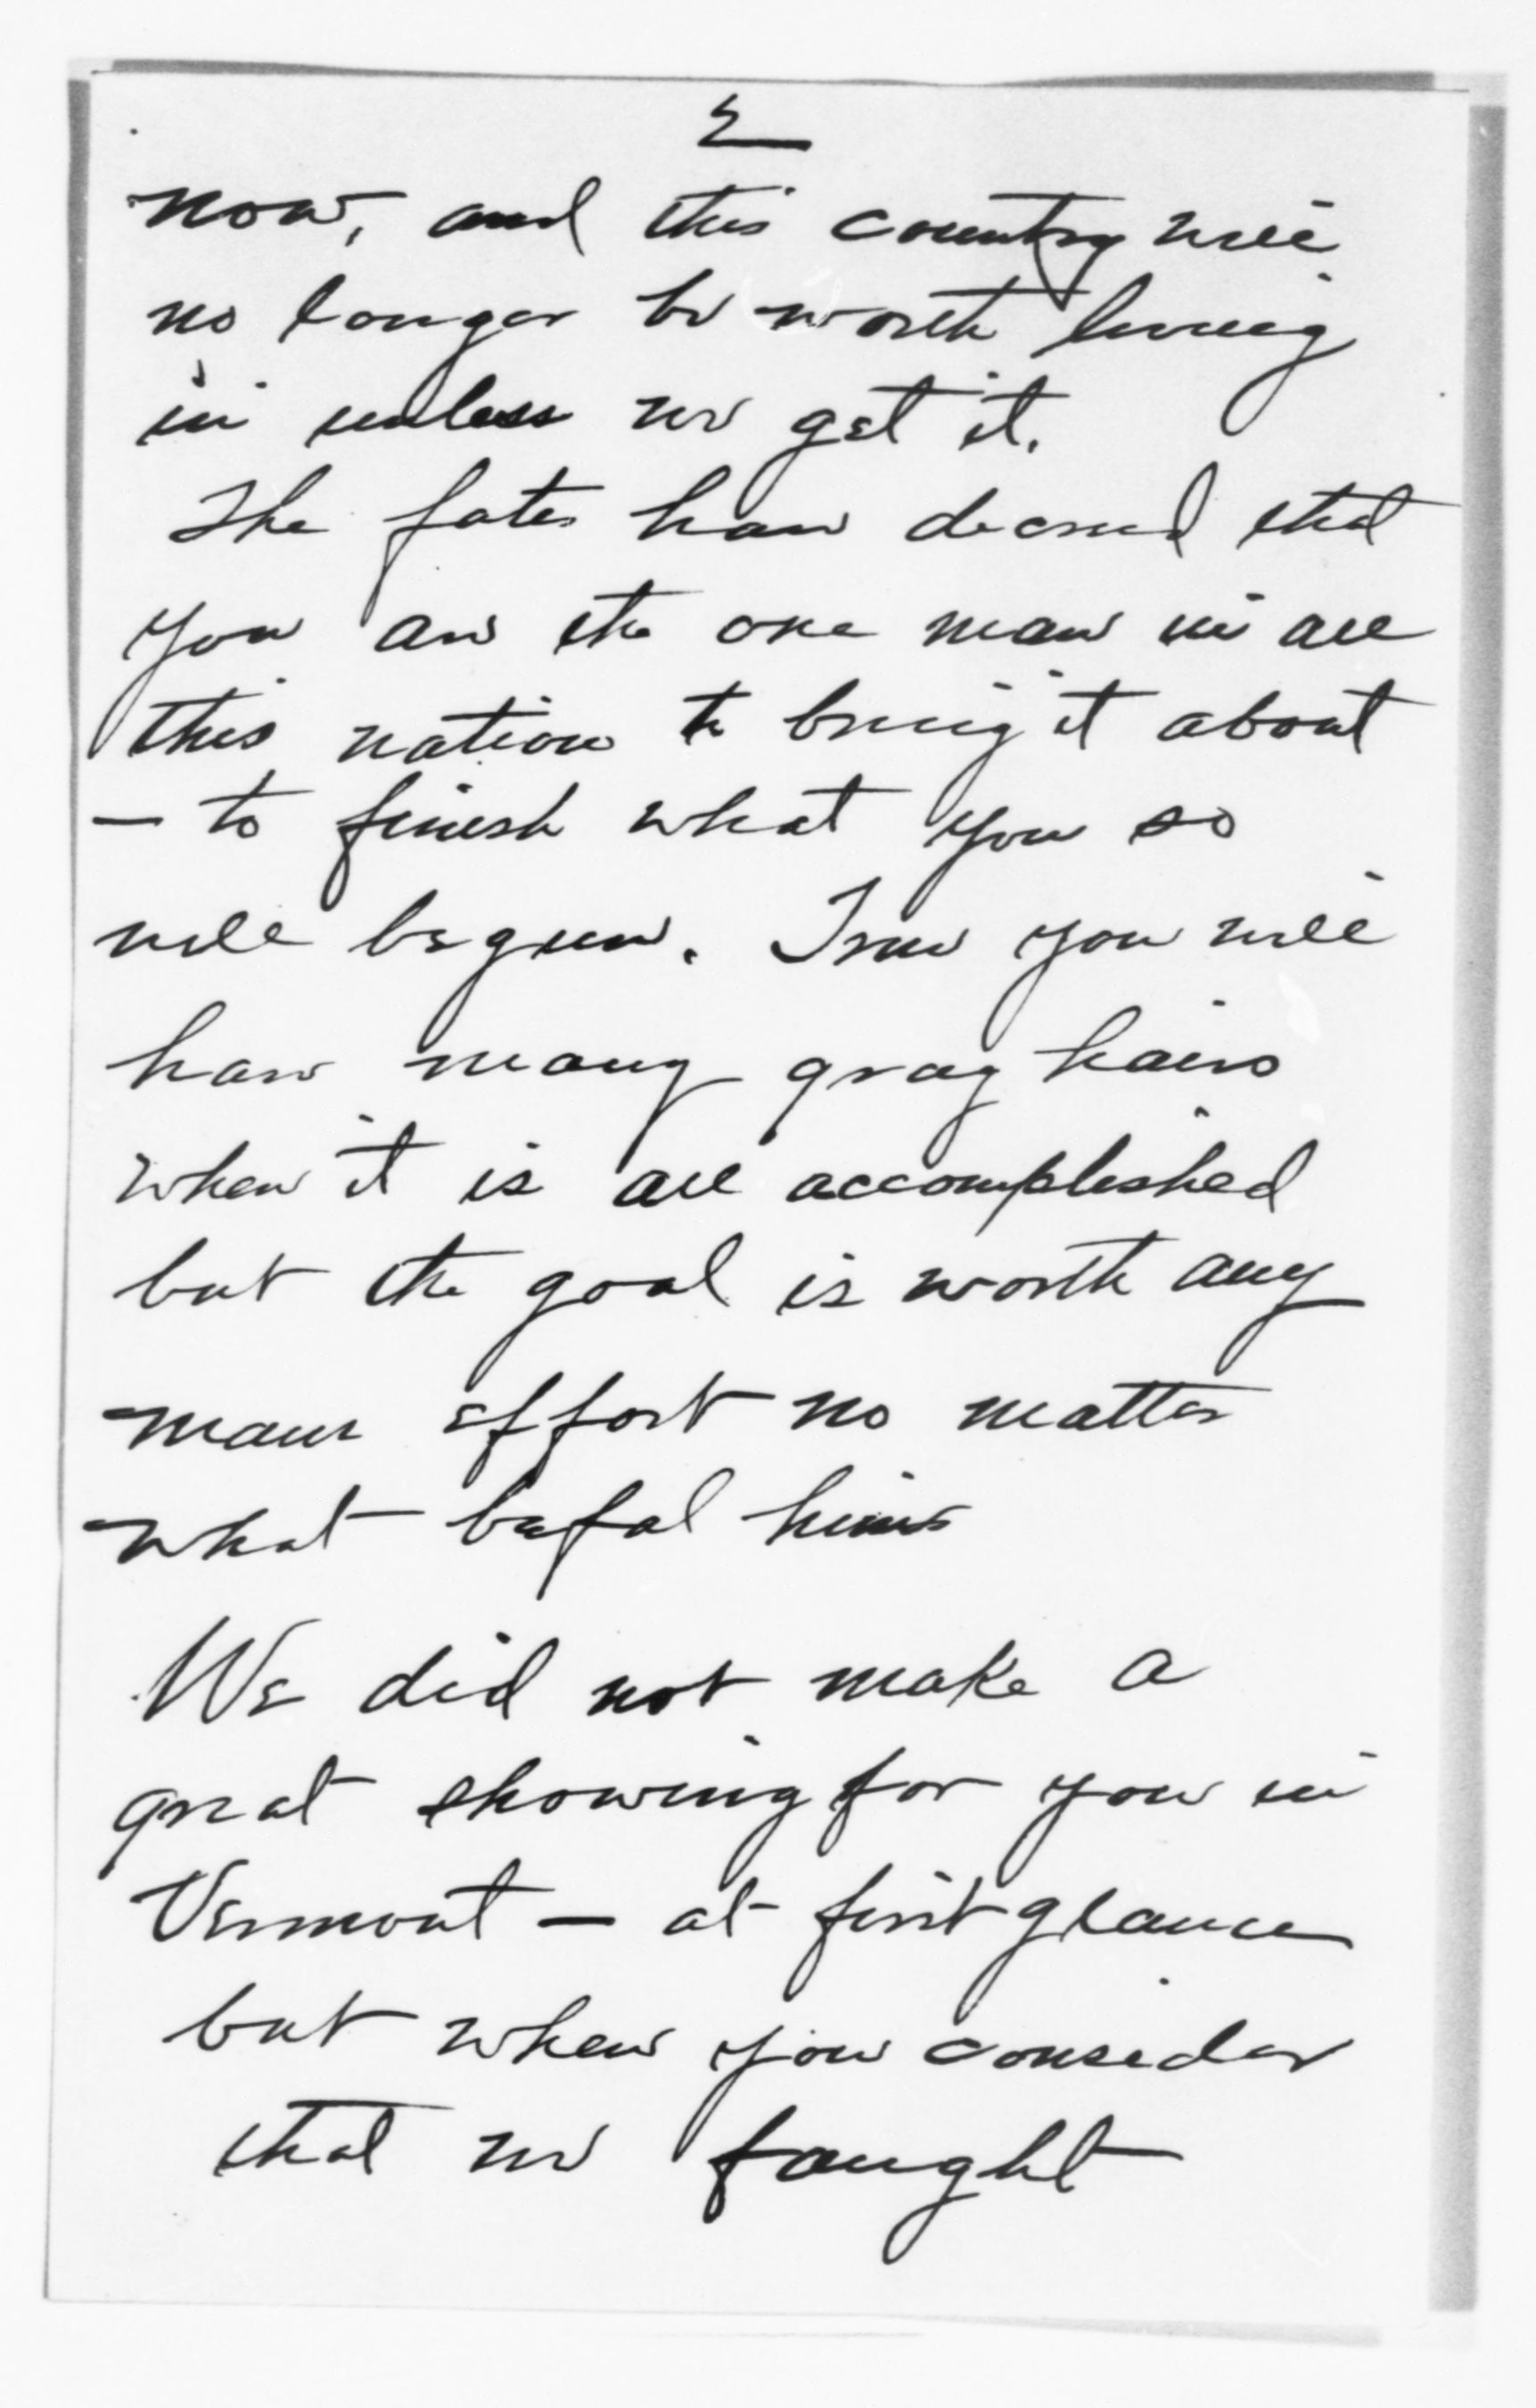 2
now, and this country will
no longer be worth living
in unless we get it.
The fates have decreed that
you are the one man in all
this nation to bring it about
— to finish what you so
well begun. True you will
have many gray hairs
when it is all accomplished
but the goal is worth any
mans effort no matter
what befal him
We did not make a
great showing for you in
Vermont — at first glance
but when you consider
that we fought